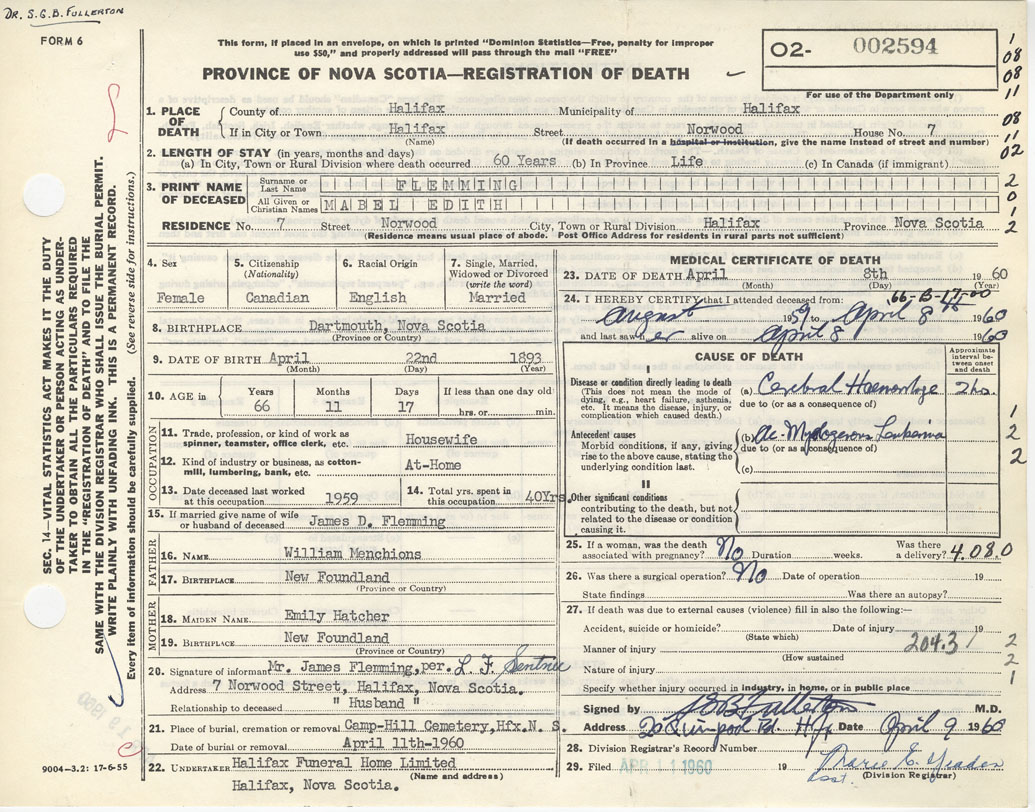 DR. S.G.B. FULLERTON
FORM 6
This form, if placed in an envelope, on which is printed "Dominion Statistics—Free, penalty for improper
use $50," and properly addressed will pass through the mail "FREE"
PROVINCE OF NOVA SCOTIA—REGISTRATION OF DEATH
O2- 002594
For use of the Department only
1
08
08
11
08
11
02
2
0
1
2
SEC. 14—VITAL STATISTICS ACT MAKES IT THE DUTY
OF THE UNDERTAKER OR PERSON ACTING AS UNDER-
TAKER TO OBTAIN ALL THE PARTICULARS REQUIRED
IN THE "REGISTRATION OF DEATH" AND TO FILE THE
SAME WITH THE DIVISION REGISTRAR WHO SHALL ISSUE THE BURIAL PERMIT.
WRITE PLAINLY WITH UNFADING INK. THIS IS A PERMANENT RECORD.
Every item of information should be carefully supplied. (See reverse side for instructions.)
1. PLACE OF DEATH County of Halifax Municipality of Halifax
If in City or Town Halifax Street Norwood House No. 7
(Name) (If death occurred in a hospital or institution, give the name instead of street and number)
2. LENGTH OF STAY (in years, months and days)
(a) In City, Town or Rural Division where death occurred 60 Years (b) In Province Life (c) In Canada (if immigrant)
3. PRINT NAME OF DECEASED Surname or Last Name FLEMMING
All Given or Christian Names MABEL EDITH
RESIDENCE No. 7 Street Norwood City, Town or Rural Division Halifax Province Nova Scotia
(Residence means usual place of abode. Post Office Address for residents in rural parts not sufficient)
4. Sex 5. Citizenship 6. Racial Origin 7. Single, Married,
(Nationality) Widowed or Divorced
(write the word)
Female Canadian English Married
8. BIRTHPLACE Dartmouth, Nova Scotia
(Province or Country)
9. DATE OF BIRTH April 22nd 1893
(Month) (Day) (Year)
10. AGE in Years Months Days If less than one day old
66 11 17 hrs. or min.
OCCUPATION
11. Trade, profession, or kind of work as
spinner, teamster, office clerk, etc. Housewife
12. Kind of industry or business, as cotton-
mill, lumbering, bank, etc. At-Home
13. Date deceased last worked
at this occupation 1959
14. Total yrs. spent in
this occupation 40Yrs.
15. If married give name of wife
or husband of deceased James D. Flemming
FATHER
16. NAME William Menchions
17. BIRTHPLACE New Foundland
(Province or Country)
MOTHER
18. MAIDEN NAME Emily Hatcher
19. BIRTHPLACE New Foundland
(Province or Country)
20. Signature of informant Mr. James Flemming, per. L. F.
Address 7 Norwood Street, Halifax, Nova Scotia.
Relationship to deceased " Husband "
21. Place of burial, cremation or removal Camp-Hill Cemetery, Hfx. N. S.
Date of burial or removal April 11th-1960
22. UNDERTAKER Halifax Funeral Home Limited
(Name and address)
Halifax, Nova Scotia.
9004-3.2: 17-6-55
MEDICAL CERTIFICATE OF DEATH
23. DATE OF DEATH April 8th 1960
(Month) (Day) (Year)
66-B-17-00
24. I HEREBY CERTIFY that I attended deceased from:
August 1959 to April 8 1960
and last saw her alive on April 8 1960
CAUSE OF DEATH
Approximate interval between onset and death
I
Disease or condition directly leading to death
(This does not mean the mode of
dying, e.g., heart failure, asthenia,
etc. It means the disease, injury, or
complication which caused death.)
(a) Cerebral Haemorrhage 2 hrs.
due to (or as a consequence of)
Antecedent causes
Morbid conditions, if any, giving
rise to the above cause, stating the
underlying condition last.
(b) Ac. Myelogenous Leukemia
due to (or as a consequence of)
(c)
II
Other significant conditions
contributing to the death, but not
related to the disease or condition
causing it.
1
2
2
25. If a woman, was the death
associated with pregnancy? No Duration weeks. Was there
a delivery? 4.08.0
26. Was there a surgical operation? No Date of operation 19
State findings Was there an autopsy?
27. If death was due to external causes (violence) fill in also the following:—
Accident, suicide or homicide? Date of injury 19
(State which) 204.3
Manner of injury
(How sustained)
Nature of injury
Specify whether injury occurred in industry, in home, or in public place
2
2
1
Signed by SGB Fullerton M.D.
Address Rd. Hfx Date April 9 1960
28. Division Registrar's Record Number
29. Filed APR 11 1960 19 Marie E.
Asst. (Division Registrar)